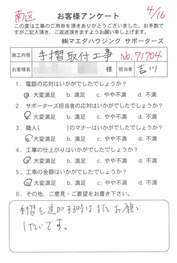 南区
4/16
お客様アンケート
この度は工事のご用命を頂きありがとうございました。お手数で
すがご記入頂き、ご返送頂きますようお願い申し上げます。
㈱マエダハウジング サポーターズ
施工内容 手摺取付工事 No.71704
お客様名 様 担当者 吉川
1. 電話の応対はいかがでしたでしょうか?
a. 大変満足 b. 満足 c. やや不満 d. 不満
2. サポーターズ担当者の応対はいかがでしたでしょうか?
a. 大変満足 b. 満足 c. やや不満 d. 不満
3. 職人( )のマナーはいかがでしたでしょうか?
a. 大変満足 b. 満足 c. やや不満 d. 不満
4. 工事の仕上がりはいかがでしたでしょうか?
a. 大変満足 b. 満足 c. やや不満 d. 不満
5. 工事の金額はいかがでしたでしょうか?
a. 大変満足 b. 満足 c. やや不満 d. 不満
6. その他、ご意見・ご要望をお書き下さい。
手摺を追加する時はまたお願い
したいです。